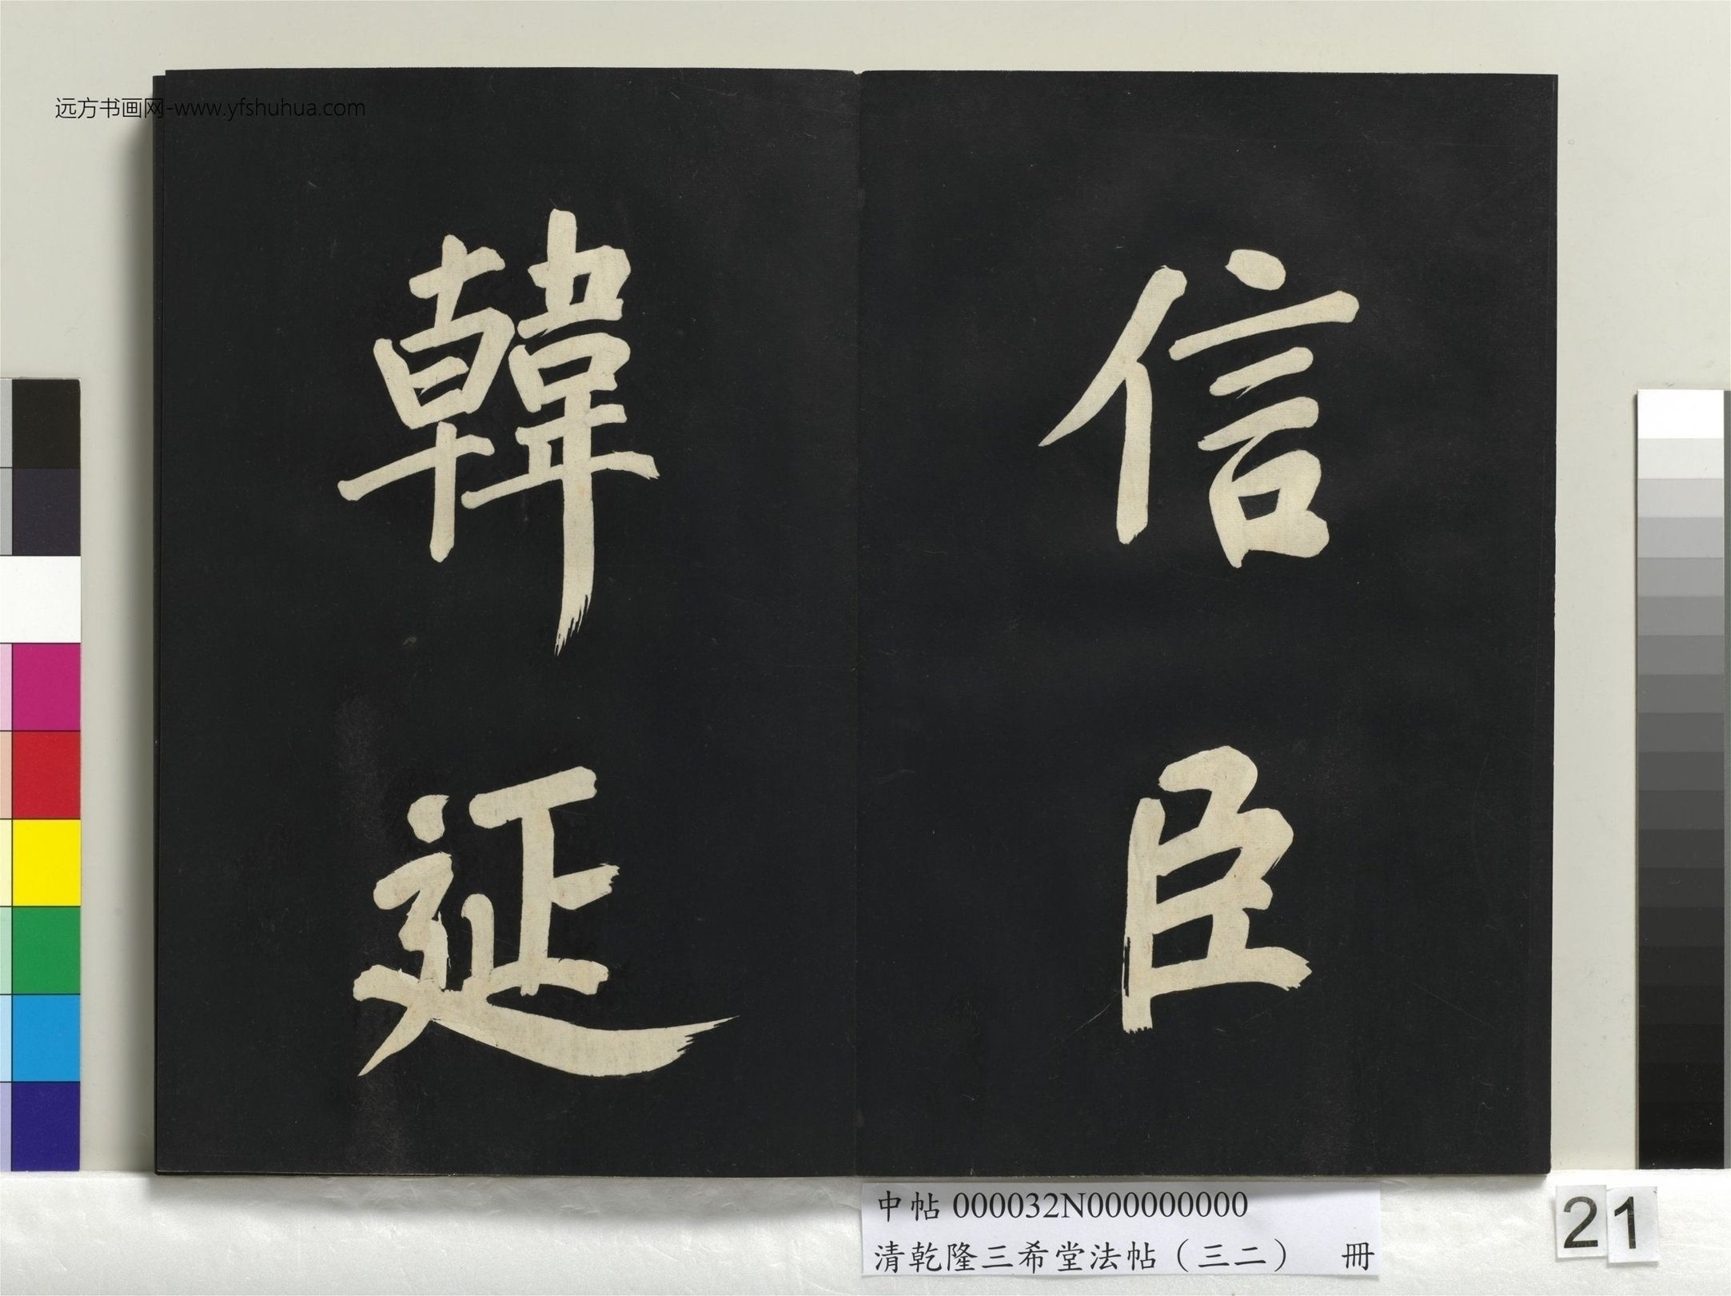 远方书画网-www.yfshuhua.com
信臣
韓延
中帖 000032N000000000
清乾隆三希堂法帖（三二） 冊
21